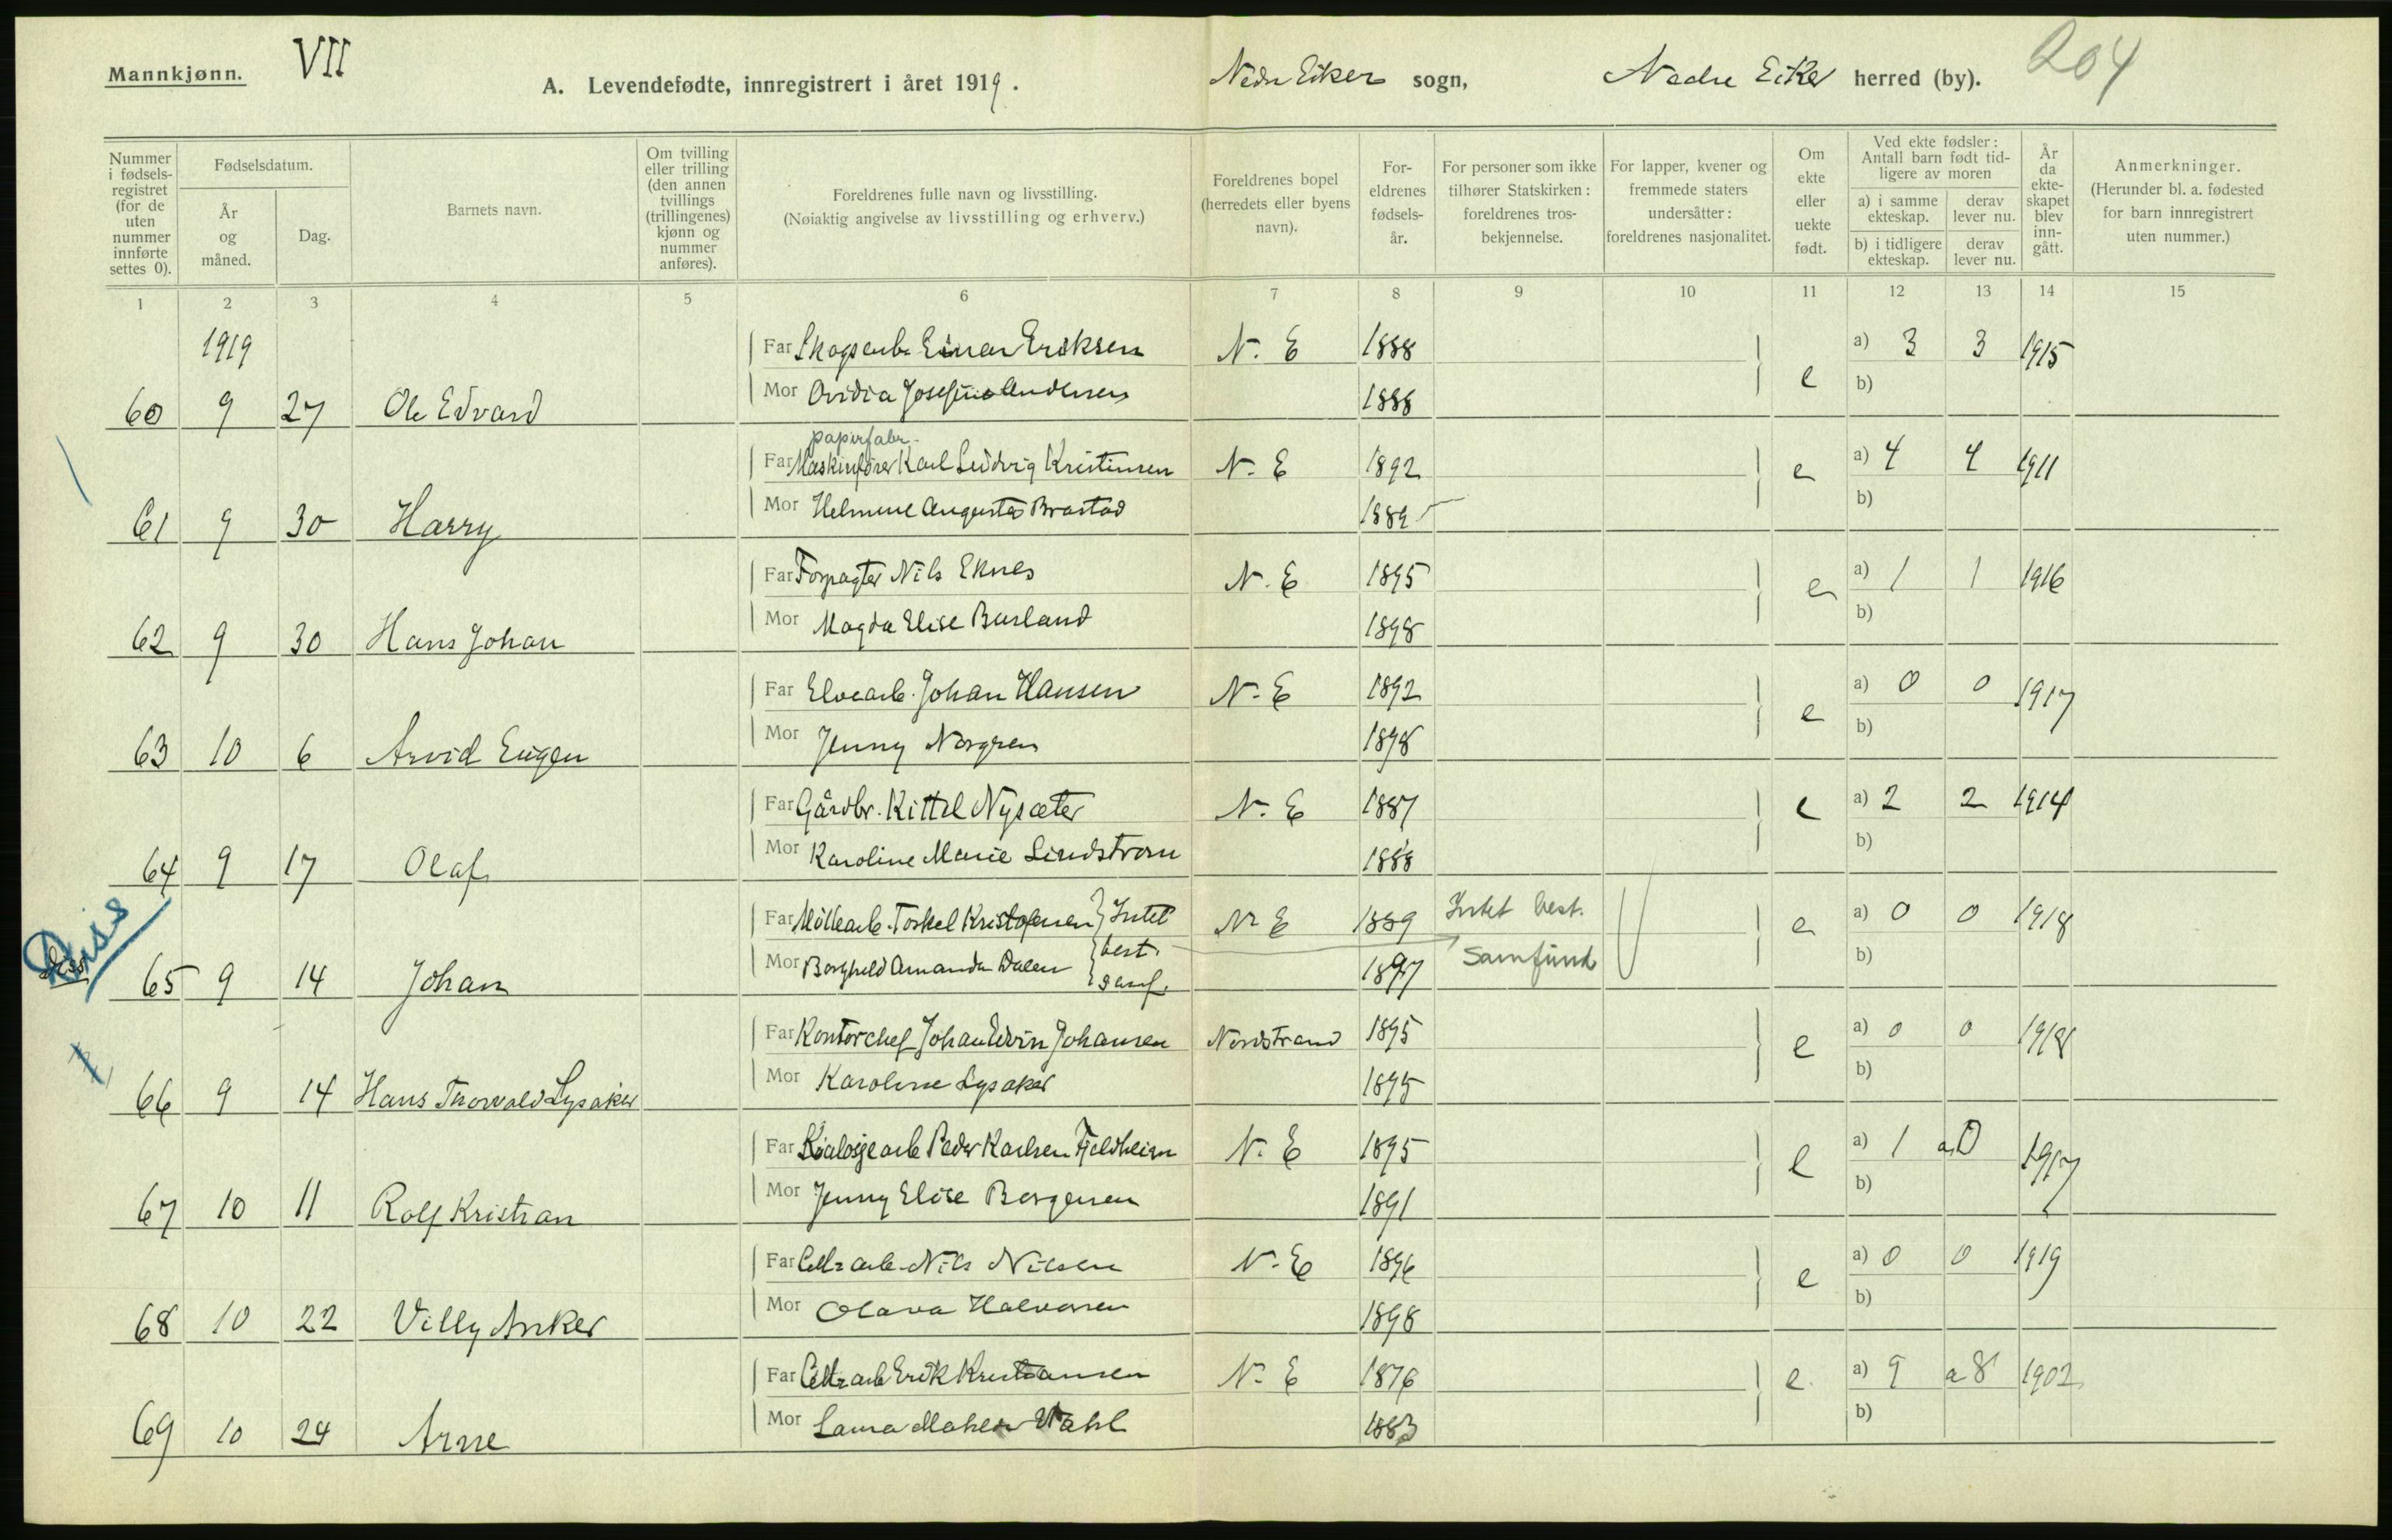 Mannkjønn. VII
A. Levendefødte, innregistrert i året 1919. Nedre Eiker sogn, Nedre Eiker herred (by). 204
Nummer i fødsels-registret (for de uten nummer innførte settes 0).
Fødselsdatum.
År og måned.
Dag.
Barnets navn.
Om tvilling eller trilling (den annen tvillings (trillingenes) kjønn og nummer anføres).
Foreldrenes fulle navn og livsstilling.
(Nøiaktig angivelse av livsstilling og erhverv.)
Foreldrenes bopel (herredets eller byens navn).
For-eldrenes fødsels-år.
For personer som ikke tilhører Statskirken: foreldrenes tros-bekjennelse.
For lapper, kvener og fremmede staters undersåtter: foreldrenes nasjonalitet.
Om ekte eller uekte født.
Ved ekte fødsler: Antall barn født tid-ligere av moren
a) i samme ekteskap.
derav lever nu.
b) i tidligere ekteskap.
derav lever nu.
År da ekte-skapet blev inn-gått.
Anmerkninger.
(Herunder bl. a. fødested for barn innregistrert uten nummer.)
1 2 3 4 5 6 7 8 9 10 11 12 13 14 15
1919
Far Skogsarb. Einar Eriksen N. E 1888 a) 3 3 1915
Mor Ovidia Josefine Andersen 1888 e b)
60 9 27 Ole Edvard
papirfabr.
Far Maskinfører Karl Ludvig Kristiansen N. E 1892 e a) 4 4 1911
Mor Helmine Augusta Brastad 1889 b)
61 9 30 Harry
Far Forpagter Nils Eknes N. E 1895 e a) 1 1 1916
Mor Magda Elise Busland 1898 b)
62 9 30 Hans Johan
Far Elvearb. Johan Hansen N. E 1892 e a) 0 0 1917
Mor Jenny Norgren 1898 b)
63 10 6 Arvid Eugen
Far Gårdbr. Kittil Nysæter N. E 1887 e a) 2 2 1914
Mor Karoline Marie Lindstrøm 1888 b)
64 9 17 Olaf
Far Møllearb. Torkel Kristofersen } Intet N. E 1889 Intet best. e a) 0 0 1918
Mor Borghild Amanda Dalen best. samf. 1897 Samfund b)
Diss
diss
65 9 14 Johan
Far Kontorchef Johan Edvin Johansen Nordstrand 1895 e a) 0 0 1918
Mor Karoline Lysaker 1895 b)
66 9 14 Hans Thorvald Lysaker
Far Peder Karlsen Fjeldheim N. E 1895 e a) 1 a 0 1917
Mor Jenny Elise Borgersen 1891 b)
67 10 11 Rolf Kristian
Far Cell. arb. Nils Nilsen N. E 1896 e a) 0 0 1919
Mor Olava Halvorsen 1898 b)
68 10 22 Villy Anker
Far Cell. arb. Erik Kristiansen N. E 1876 e a) 9 a 8 1902
Mor Laura Wahl 1883 b)
69 10 24 Arne